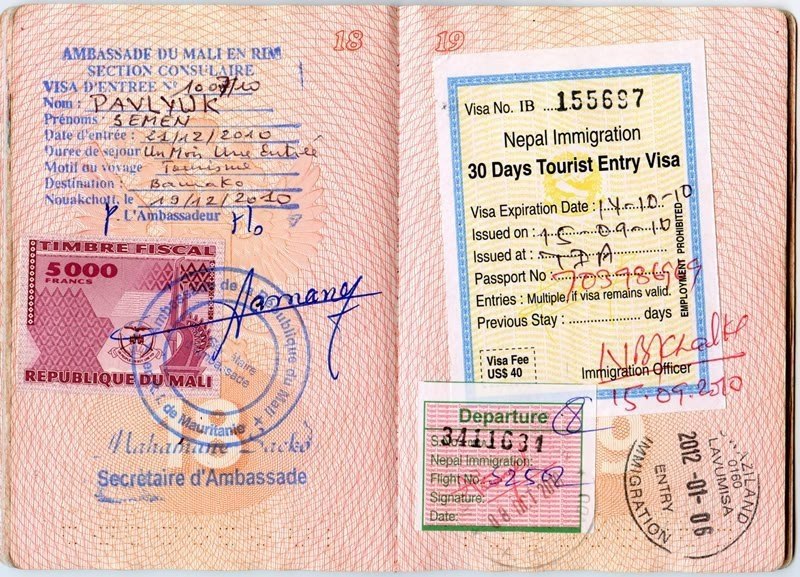 18
AMBASSADE DU MALI EN RIM
SECTION CONSULAIRE
VISA D'ENTREE N° 1007/10
Nom : PAVLYUK
Prénoms SEMEN
Date d'entrée : 21/12/2010
Durée de sejour Un Mois Une Entrée
Motif du voyage Tourisme
Destination : Bamako
Nouakchott, le 19/12/2010
P L'Ambassadeur Mo
TIMBRE FISCAL
5000
FRANCS
REPUBLIQUE DU MALI
de Mauritanie
Mahamane
Secrétaire d'Ambassade
19
Visa No. IB ...155697
Nepal Immigration
30 Days Tourist Entry Visa
Visa Expiration Date : 14-10-10
Issued on : 15-09-10
Issued at : TIA
Passport No
Entries : Multiple, if visa remains valid.
Previous Stay : .................. days
EMPLOYMENT PROHIBITED
Visa Fee
US$ 40
Immigration Officer
15.09.2010
Departure
3411631
Nepal Immigration:
Flight No.
Signature:
Date:
SWAZILAND
0160
LAVUMISA
2012-01-06
ENTRY
IMMIGRATION